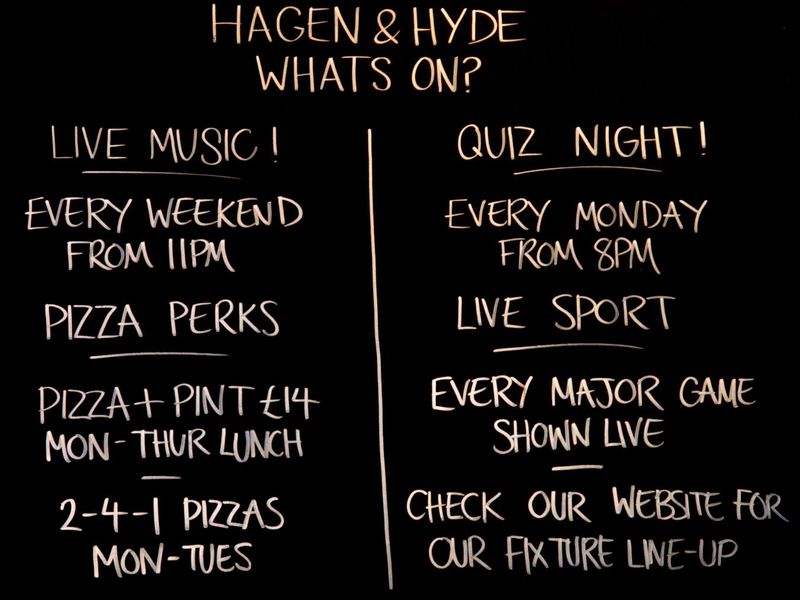 HAGEN & HYDE
WHATS ON?
LIVE MUSIC!
EVERY WEEKEND
FROM 11PM
PIZZA PERKS
PIZZA + PINT £14
MON-THUR LUNCH
2-4-1 PIZZAS
MON-TUES
QUIZ NIGHT!
EVERY MONDAY
FROM 8PM
LIVE SPORT
EVERY MAJOR GAME
SHOWN LIVE
CHECK OUR WEBSITE FOR
OUR FIXTURE LINE-UP